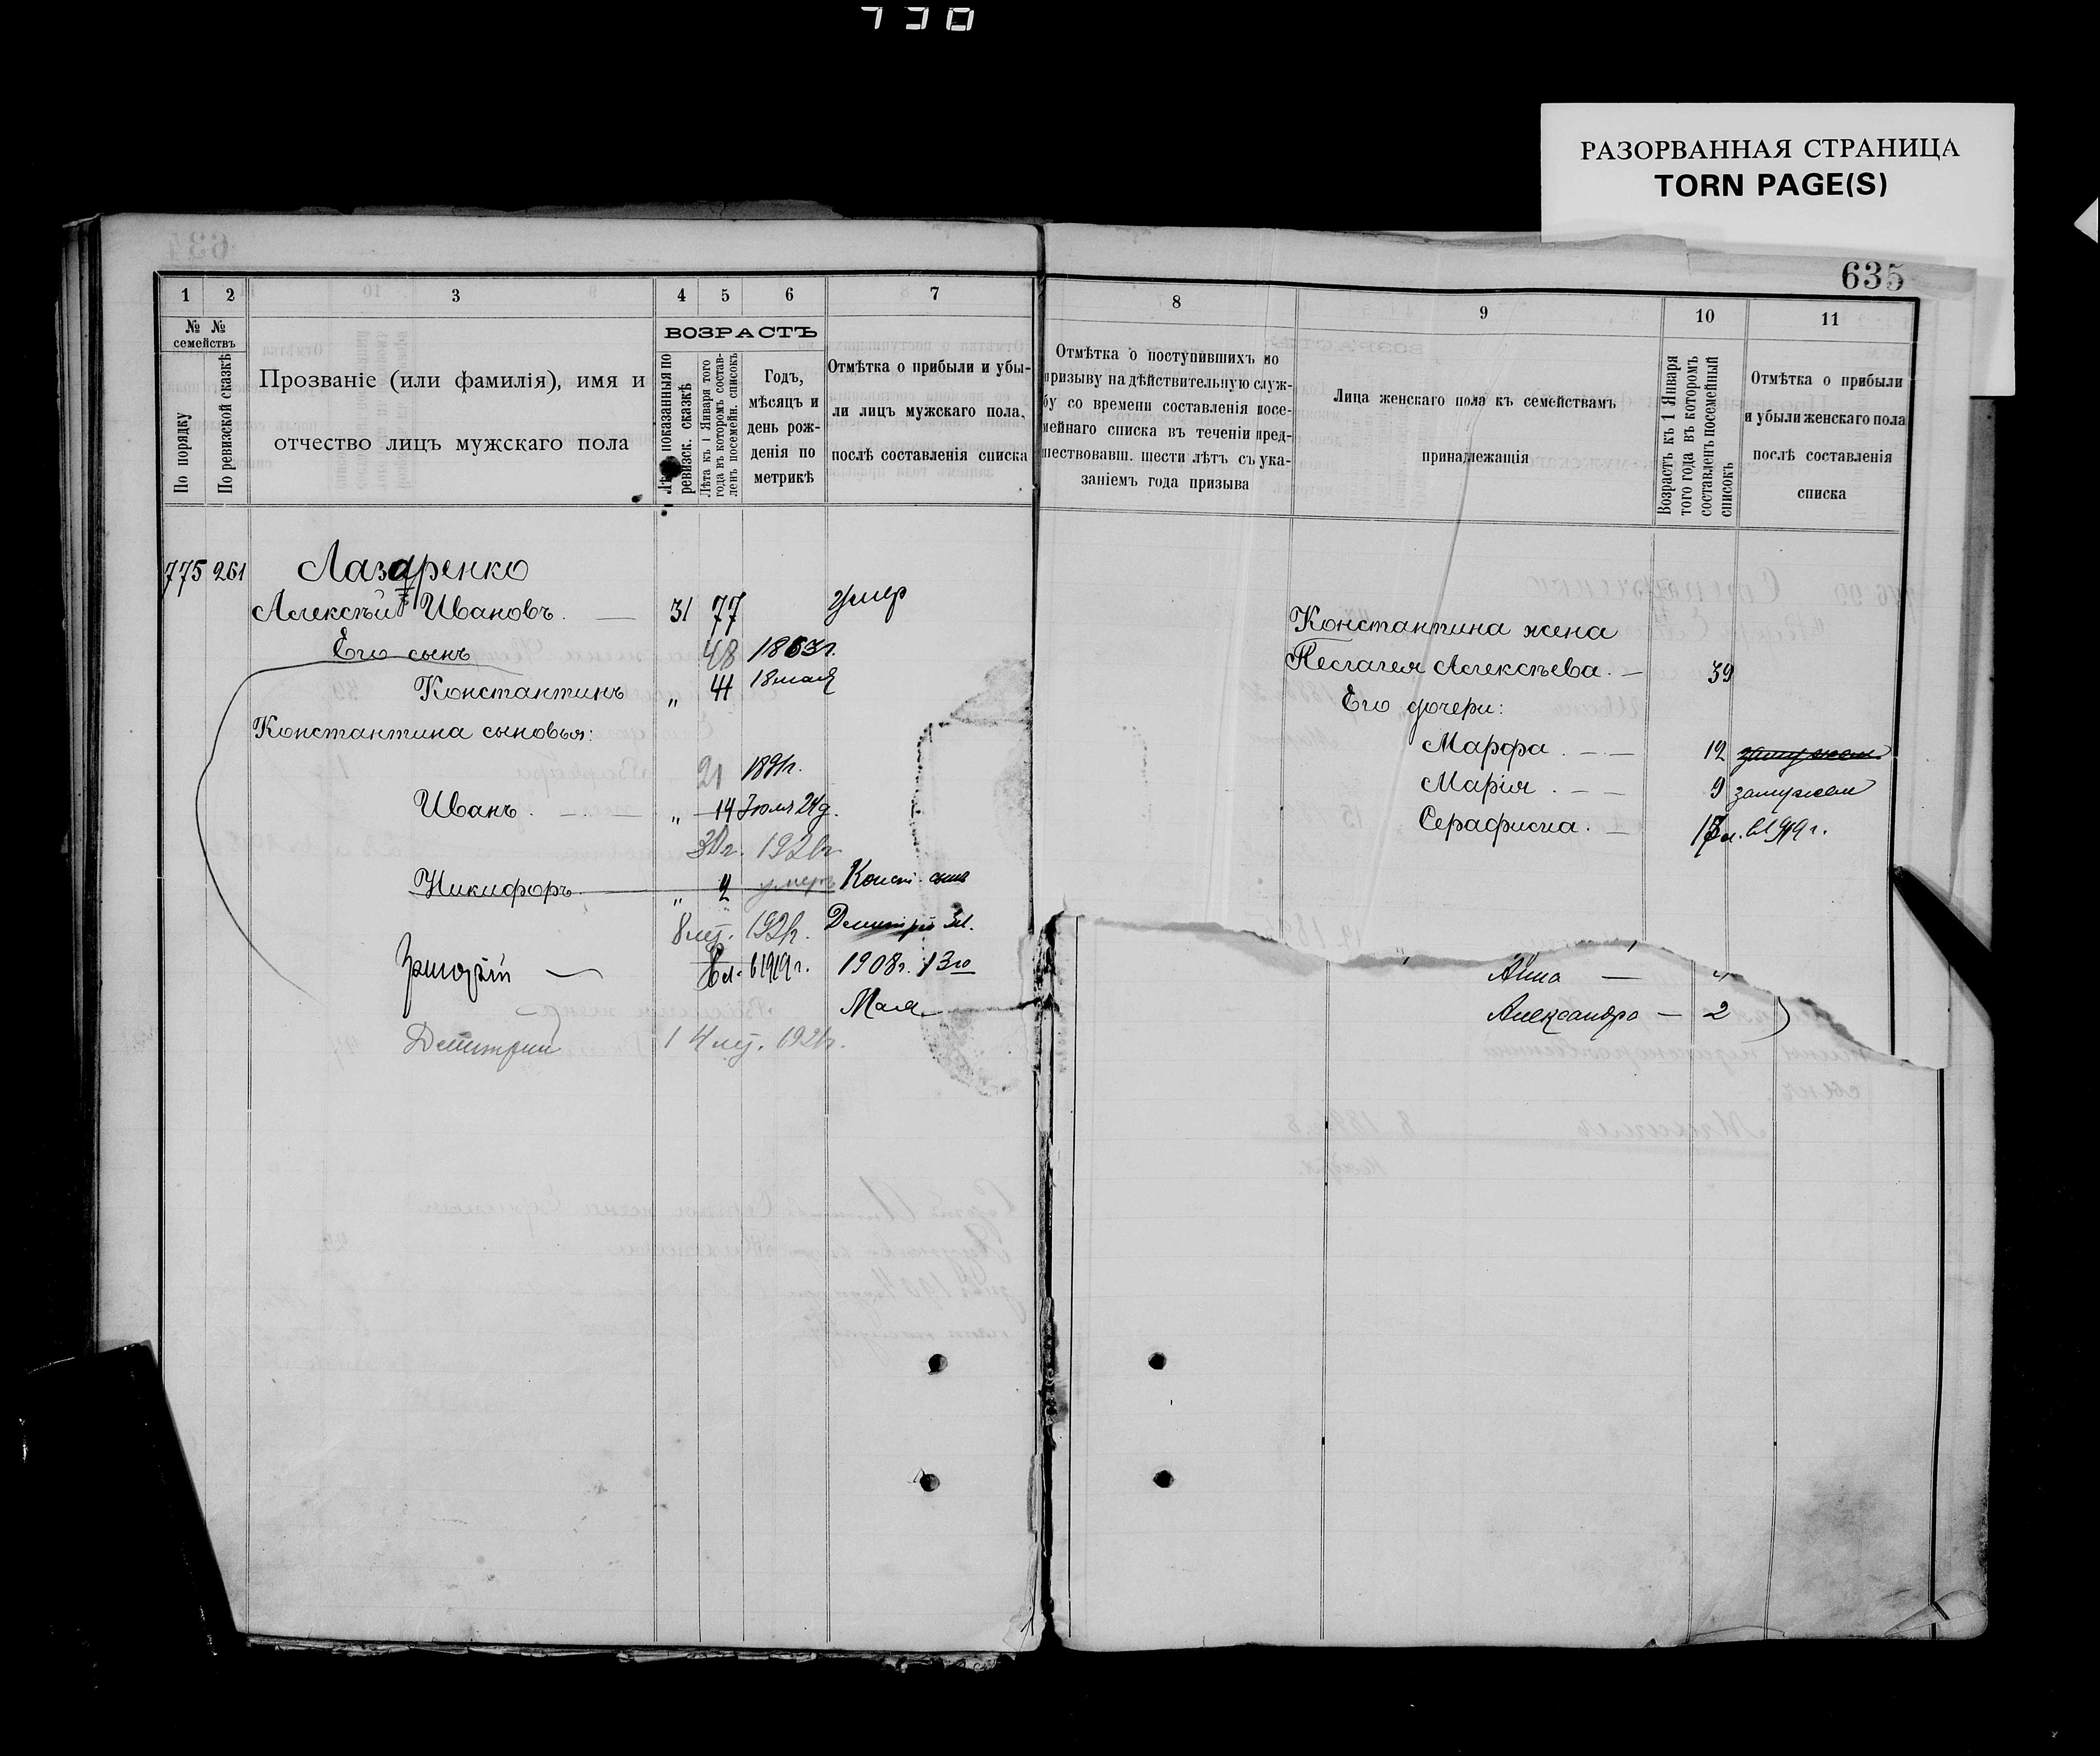 730
РАЗОРВАННАЯ СТРАНИЦА
TORN PAGE(S)
635
1 2 3 4 5 6 7
№ № семействъ
По порядку
По ревизской сказкѣ
Прозваніе (или фамилія), имя и
отчество лицъ мужскаго пола
ВОЗРАСТЪ
Лѣта показанныя по
ревизск. сказкѣ
Лѣта къ 1 Января того
года въ которомъ состав-
ленъ посемейн. списокъ
Годъ,
мѣсяцъ и
день рож-
денія по
метрикѣ
Отмѣтка о прибыли и убы-
ли лицъ мужскаго пола,
послѣ составленія списка
775 261 Лазаренко
Алексѣй Ивановъ. — 31 77 умер
Его сынъ 48 1863г.
Константинъ „ 44 18 мая
Константина сыновья:
21 1891г.
Иванъ. — „ 14 Іюля 24 д.
30г. 1921г
Никифоръ. „ 2 умеръ Конст. сынъ
8 мц. 1921г. Дмитрій
6 л. в 1919 г. 1908г. 13го
Мая
Дмитрий 1 4 мц. 1921г.
8 9 10 11
Отмѣтка о поступившихъ по
призыву на дѣйствительную служ-
бу со времени составленія посе-
мейнаго списка въ теченіи пред-
шествовавш. шести лѣтъ съ ука-
заніемъ года призыва
Лица женскаго пола къ семействамъ
принадлежащія
Возрастъ къ 1 Января
того года въ которомъ
составленъ посемейный
списокъ
Отмѣтка о прибыли
и убыли женскаго пола
послѣ составленія
списка
Константина жена
Пелагея Алексѣева. — 39
Его дочери:
Марфа. — — 12 замужем
Марія. — — 9 замужем
Серафима. — л. в 1919 г.
Анна —
Александра — 2